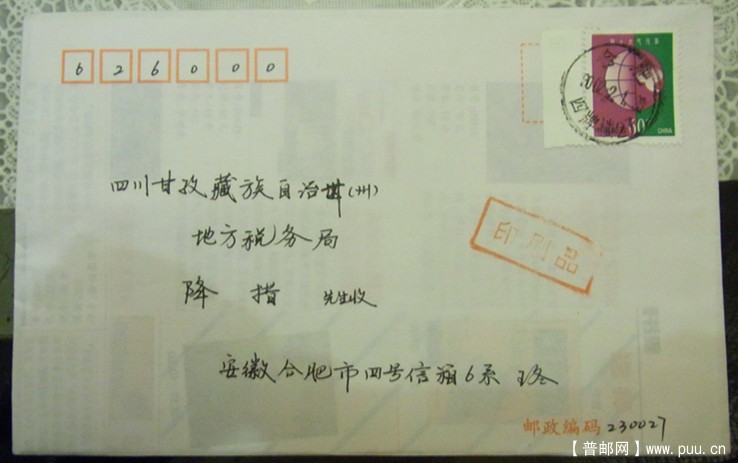 626000
防止大气污染
50
CHINA
四川甘孜藏族自治(州)
地方税务局
印刷品
降措 先生收
安徽合肥市四号信箱6系 王冬
邮政编码 230027
【普邮网】www.puu.cn